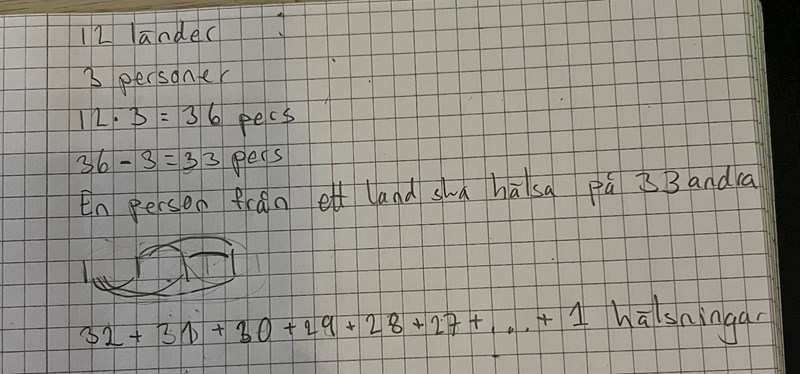 12 länder
3 personer
12 · 3 = 36 pers
36 - 3 = 33 pers
En person från ett land ska hälsa på 33 andra
32 + 31 + 30 + 29 + 28 + 27 + ... + 1 hälsningar